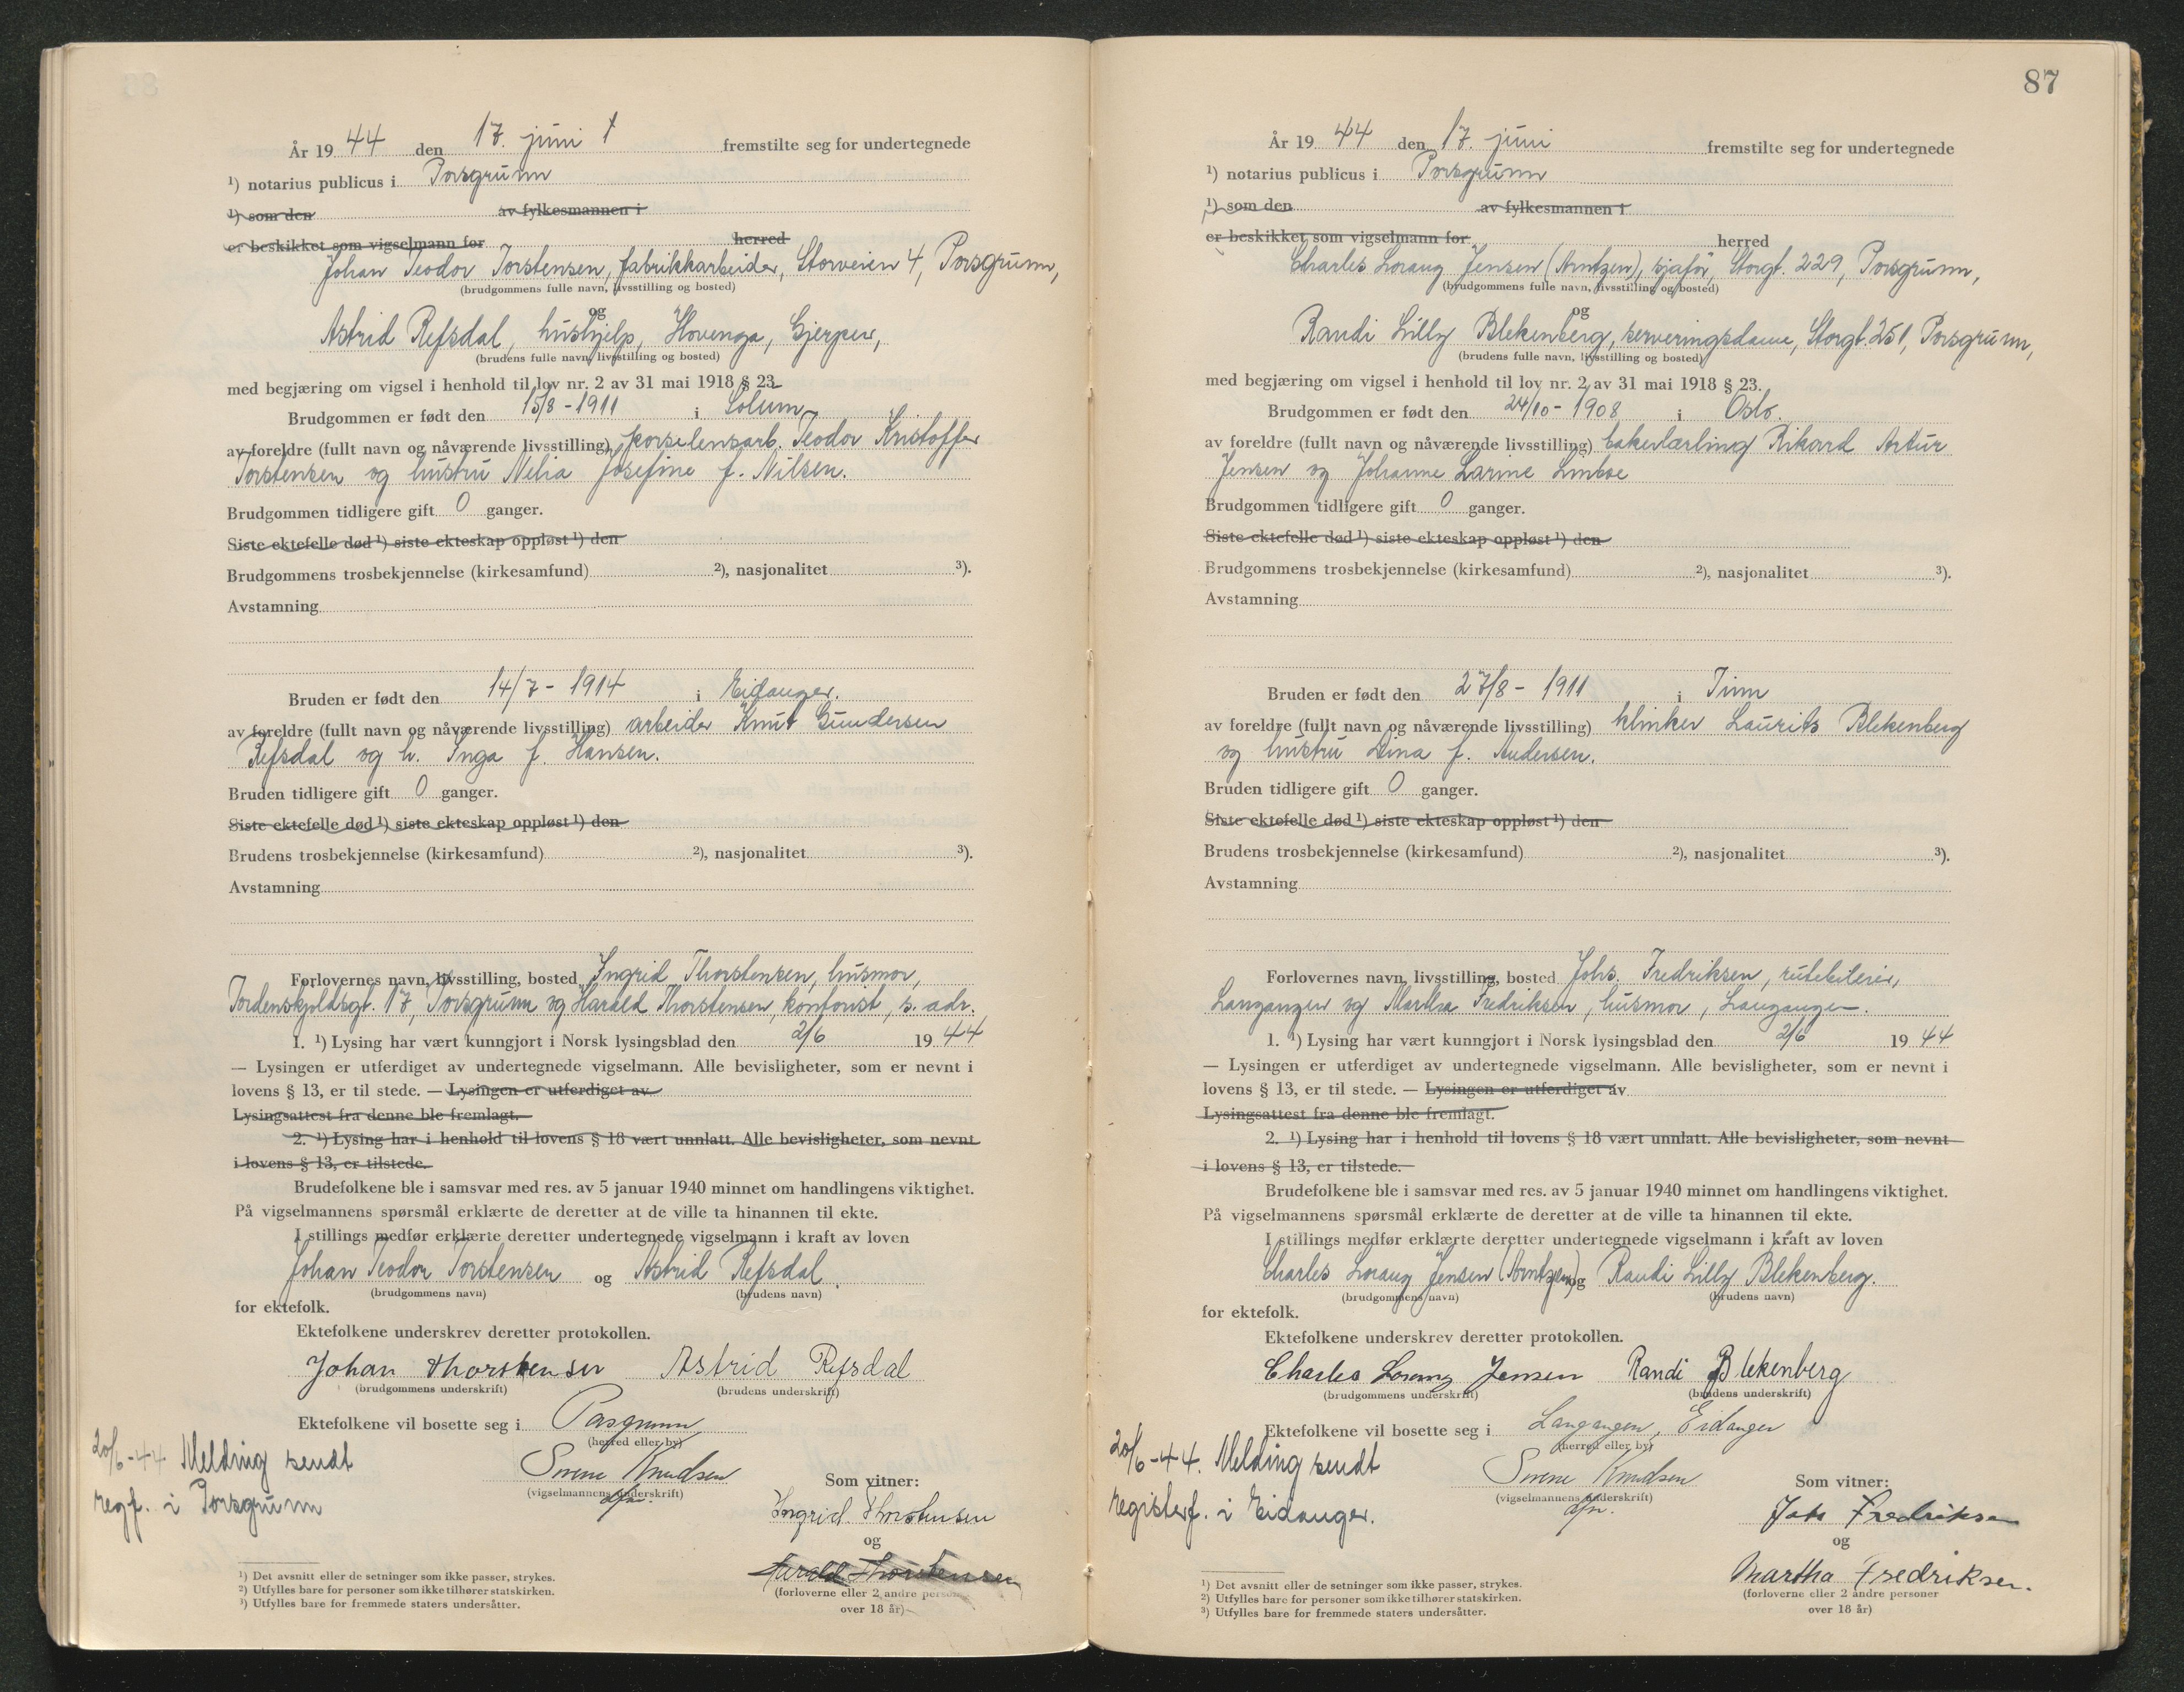 År 19 44 den 17. juni fremstilte seg for undertegnede
¹) notarius publicus i Porsgrunn
¹) som den av fylkesmannen i
er beskikket som vigselmann for herred
Johan Teodor Torstensen, fabrikkarbeider, Storveien 4, Porsgrunn,
(brudgommens fulle navn, livsstilling og bosted)
og
Astrid Refsdal, hushjelp, Hovenga, Gjerpen,
(brudens fulle navn, livsstilling og bosted)
med begjæring om vigsel i henhold til lov nr. 2 av 31 mai 1918 § 23.
Brudgommen er født den 15/8 - 1911 i Solum
av foreldre (fullt navn og nåværende livsstilling) porselensarb. Teodor Kristoffer
Torstensen og hustru Nelia Josefine f. Nilsen.
Brudgommen tidligere gift 0 ganger.
Siste ektefelle død ¹) siste ekteskap oppløst ¹) den
Brudgommens trosbekjennelse (kirkesamfund) ²), nasjonalitet ³).
Avstamning
Bruden er født den 14/7 - 1914 i Eidanger.
av foreldre (fullt navn og nåværende livsstilling) arbeider Knut Gundersen
Refsdal og h. Inga f. Hansen.
Bruden tidligere gift 0 ganger.
Siste ektefelle død ¹) siste ekteskap oppløst ¹) den
Brudens trosbekjennelse (kirkesamfund) ²), nasjonalitet ³).
Avstamning
Forlovernes navn, livsstilling, bosted Ingrid Thorstensen, husmor,
Tordenskjoldsgt. 17, Porsgrunn og Harald Thorstensen, kontorist, s. adr.
1. ¹) Lysing har vært kunngjort i Norsk lysingsblad den 2/6 19 44
— Lysingen er utferdiget av undertegnede vigselmann. Alle bevisligheter, som er nevnt i
lovens § 13, er til stede. — Lysingen er utferdiget av
Lysingsattest fra denne ble fremlagt.
2. ¹) Lysing har i henhold til lovens § 18 vært unnlatt. Alle bevisligheter, som nevnt
i lovens § 13, er tilstede.
Brudefolkene ble i samsvar med res. av 5 januar 1940 minnet om handlingens viktighet.
På vigselmannens spørsmål erklærte de deretter at de ville ta hinannen til ekte.
I stillings medfør erklærte deretter undertegnede vigselmann i kraft av loven
Johan Teodor Torstensen og Astrid Refsdal.
(brudgommens navn) (brudens navn)
for ektefolk.
Ektefolkene underskrev deretter protokollen.
Johan Thorstensen Astrid Refsdal
(brudgommens underskrift) (brudens underskrift)
Ektefolkene vil bosette seg i Porsgrunn
(herred eller by)
20/6-44 Melding sendt
regf. i Porsgrunn
Knudsen
(vigselmannens underskrift)
Som vitner:
Ingrid Thorstensen
og
Harald Thorstensen
(forloverne eller 2 andre personer
over 18 år)
¹) Det avsnitt eller de setninger som ikke passer, strykes.
²) Utfylles bare for personer som ikke tilhører statskirken.
³) Utfylles bare for fremmede staters undersåtter.
87
År 19 44 den 17. juni fremstilte seg for undertegnede
¹) notarius publicus i Porsgrunn
¹) som den av fylkesmannen i
er beskikket som vigselmann for herred
Charles Jensen (Arntzen), sjåfør, Storgt. 229, Porsgrunn,
(brudgommens fulle navn, livsstilling og bosted)
og
Randi Lilly Blekenberg, serveringsdame, Storgt. 251, Porsgrunn,
(brudens fulle navn, livsstilling og bosted)
med begjæring om vigsel i henhold til lov nr. 2 av 31 mai 1918 § 23.
Brudgommen er født den 24/10 - 1908 i Oslo.
av foreldre (fullt navn og nåværende livsstilling) bakerlærling Rikard Artur
Jensen og Johanne Larine
Brudgommen tidligere gift 0 ganger.
Siste ektefelle død ¹) siste ekteskap oppløst ¹) den
Brudgommens trosbekjennelse (kirkesamfund) ²), nasjonalitet ³).
Avstamning
Bruden er født den 27/8 - 1911 i Tinn
av foreldre (fullt navn og nåværende livsstilling) klinker Laurits Blekenberg
og hustru f. Andersen.
Bruden tidligere gift 0 ganger.
Siste ektefelle død ¹) siste ekteskap oppløst ¹) den
Brudens trosbekjennelse (kirkesamfund) ²), nasjonalitet ³).
Avstamning
Forlovernes navn, livsstilling, bosted Johs. Fredriksen, rutebileier,
Langangen og Martha Fredriksen, husmor, Langangen.
1. ¹) Lysing har vært kunngjort i Norsk lysingsblad den 2/6 19 44
— Lysingen er utferdiget av undertegnede vigselmann. Alle bevisligheter, som er nevnt i
lovens § 13, er til stede. — Lysingen er utferdiget av
Lysingsattest fra denne ble fremlagt.
2. ¹) Lysing har i henhold til lovens § 18 vært unnlatt. Alle bevisligheter, som nevnt
i lovens § 13, er tilstede.
Brudefolkene ble i samsvar med res. av 5 januar 1940 minnet om handlingens viktighet.
På vigselmannens spørsmål erklærte de deretter at de ville ta hinannen til ekte.
I stillings medfør erklærte deretter undertegnede vigselmann i kraft av loven
Charles Jensen (Arntzen) og Randi Lilly Blekenberg.
(brudgommens navn) (brudens navn)
for ektefolk.
Ektefolkene underskrev deretter protokollen.
Charles Jensen Randi Blekenberg
(brudgommens underskrift) (brudens underskrift)
Ektefolkene vil bosette seg i Langangen, Eidanger
(herred eller by)
20/6-44. Melding sendt
registerf. i Eidanger.
Knudsen
(vigselmannens underskrift)
Som vitner:
Johs Fredriksen
og
Martha Fredriksen.
(forloverne eller 2 andre personer
over 18 år)
¹) Det avsnitt eller de setninger som ikke passer, strykes.
²) Utfylles bare for personer som ikke tilhører statskirken.
³) Utfylles bare for fremmede staters undersåtter.